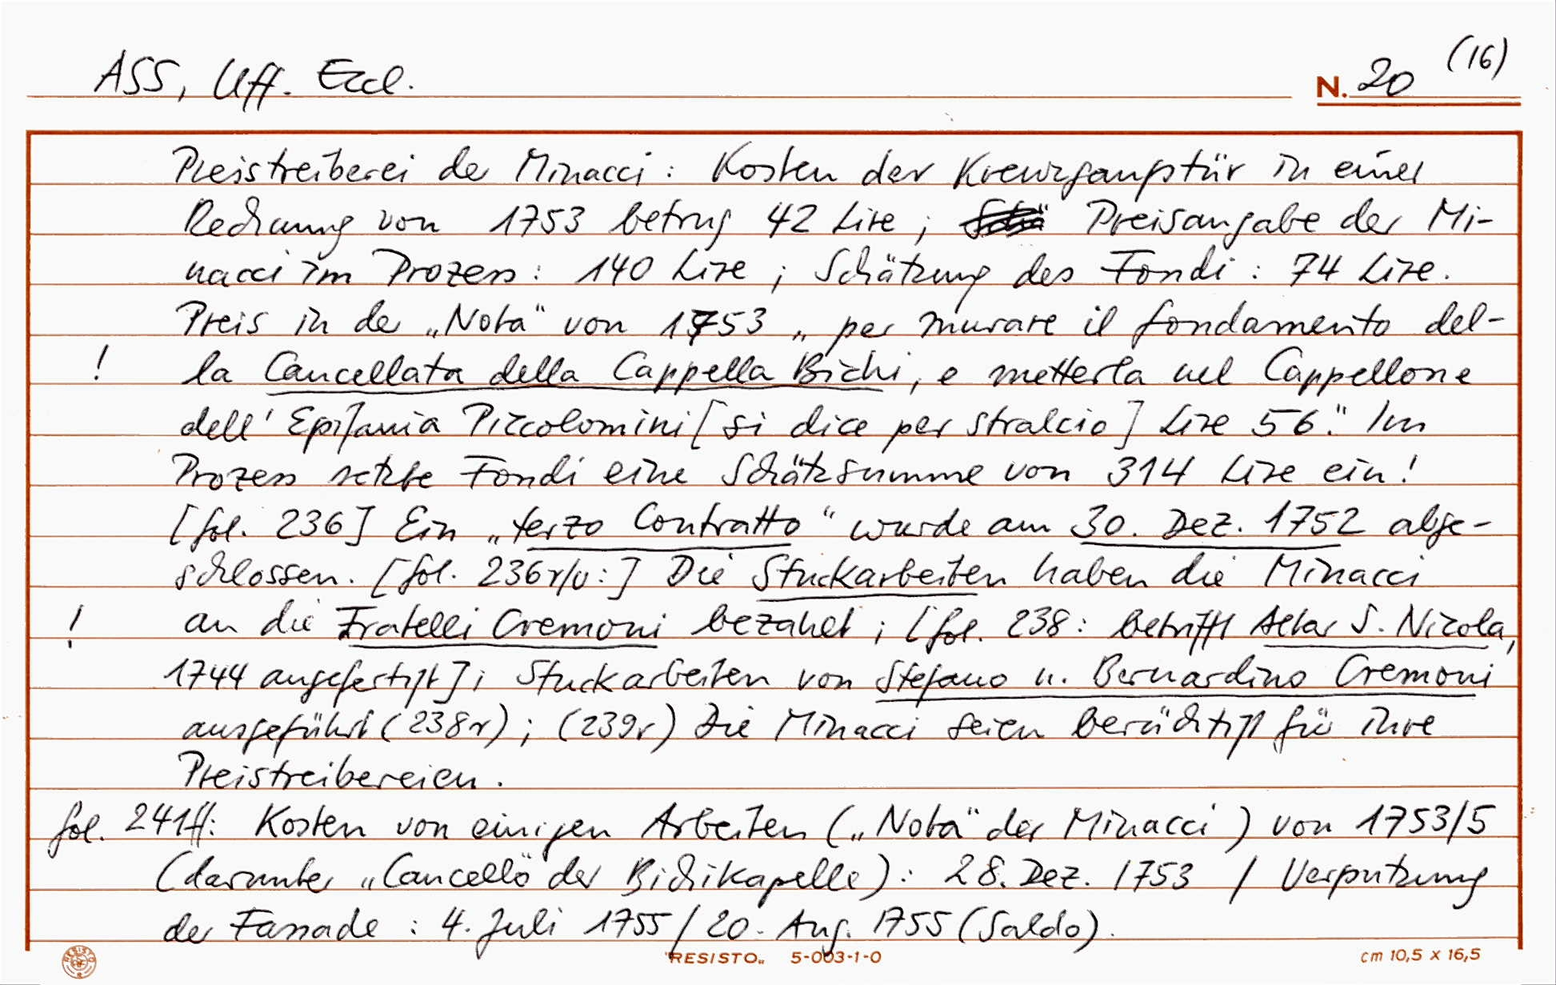 ASS, Uff. Eccl. N. 20 (16)
Preistreiberei der Minacci: Kosten der Kreuzgangstür in einer
Rechnung von 1753 betrug 42 Lire; Preisangabe der Mi-
nacci im Prozess: 140 Lire; Schätzung des Fondi: 74 Lire.
Preis in der „Nota“ von 1753 „per murare il fondamento del-
! la Cancellata della Cappella Bichi, e metterla nel Cappellone
dell' Epifania Piccolomini [si dice per stralcio] Lire 56.“ Im
Prozess setzte Fondi eine Schätzsumme von 314 Lire ein!
[fol. 236] Ein „terzo Contratto“ wurde am 30. Dez. 1752 abge-
schlossen. [fol. 236r/v:] Die Stuckarbeiten haben die Minacci
! an die Fratelli Cremoni bezahlt; [fol. 238: betrifft Altar S. Nicola,
1744 angefertigt]; Stuckarbeiten von Stefano u. Bernardino Cremoni
ausgeführt (238r); (239r) Die Minacci seien berüchtigt für ihre
Preistreibereien.
fol. 241ff: Kosten von einigen Arbeiten („Nota“ der Minacci) von 1753/5
(darunter „Cancello“ der Bichikapelle): 28. Dez. 1753 / Verputzung
der Fassade: 4. Juli 1755 / 20. Aug. 1755 (Saldo).
RESISTO
"RESISTO„ 5-003-1-0 cm 10,5 x 16,5